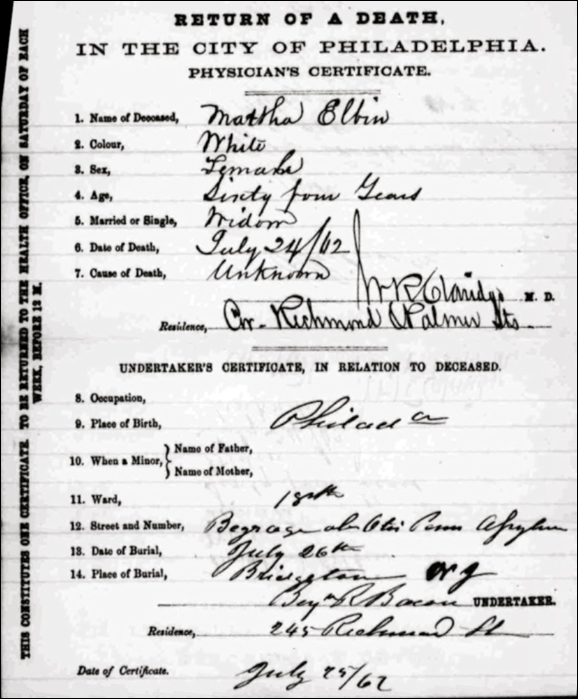 RETURN OF A DEATH,
IN THE CITY OF PHILADELPHIA.
PHYSICIAN'S CERTIFICATE.
1. Name of Deceased, Martha Elbin
2. Colour, White
3. Sex, Female
4. Age, Sixty four Years
5. Married or Single, Widow
6. Date of Death, July 24/62
7. Cause of Death, Unknown
M. D.
Residence, Cor. Richmond & Palmer Sts
UNDERTAKER'S CERTIFICATE, IN RELATION TO DECEASED.
8. Occupation,
9. Place of Birth, Philada
10. When a Minor, { Name of Father,
Name of Mother,
11. Ward, 18th
12. Street and Number, Penn Asylum
13. Date of Burial, July 26th
14. Place of Burial, Bridgeton N J
Benjn Bacon UNDERTAKER.
Residence, 245 Richmond St
Date of Certificate. July 25/62
THIS CONSTITUTES ONE CERTIFICATE. TO BE RETURNED TO THE HEALTH OFFICE, ON SATURDAY OF EACH
WEEK, BEFORE 12 M.